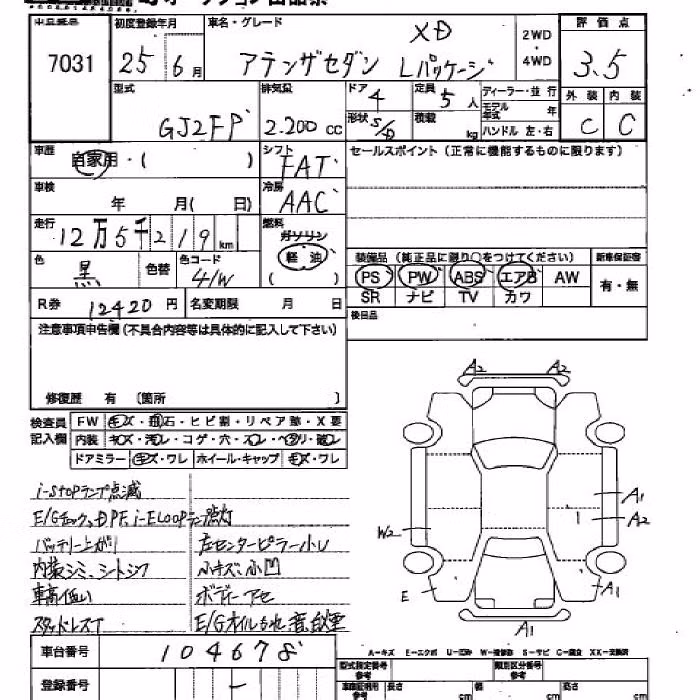 出品番号 7031
初度登録年月 25 6月
車名・グレード XD
アテンザセダン Lパッケージ
2WD・4WD
評価点 3.5
外装 C 内装 C
型式 GJ2FP
排気量 2.200 cc
ドア 4
形状 S/D
定員 5人
積載 kg
ディーラー・並行
モデル年式 年
ハンドル 左・右
車歴 自家用・( )
シフト FAT
冷房 AAC
セールスポイント (正常に機能するものに限ります)
車検 年 月( 日)
走行 12万5千219km
燃料 ガソリン 軽油 ( )
色 黒 色替 色コード 41W
装備品 (純正品に限り○をつけてください)
新車保証書 有・無
PS PW ABS エアB AW
SR ナビ TV カワ
R券 12420円 名変期限 月 日
後日品
注意事項申告欄(不具合内容等は具体的に記入して下さい)
修復歴 有 〔箇所 〕
検査員記入欄
FW キズ・飛石・ヒビ割・リペア跡・X要
内装 キズ・汚レ・コゲ・穴・スレ・ヘタリ・破レ
ドアミラー キズ・ワレ ホイール・キャップ キズ・ワレ
i-stopランプ点滅
E/Gチェック、DPF、i-ELOOPランプ点灯
バッテリー上がり 左センターピラー小U
内装シミ、シートシワ 小キズ、小凹
車高低い ボディーアセ
スタッドレスT E/Gオイルもれ
A2 A2
A1
A2
W2
E A1
A1
A-キズ E-エクボ U-凹み W-補修跡 S-サビ C-腐食 XX-交換済
車台番号 104678
登録番号 -
型式指定番号 参考
類別区分番号 参考
長さ cm 幅 cm 高さ cm